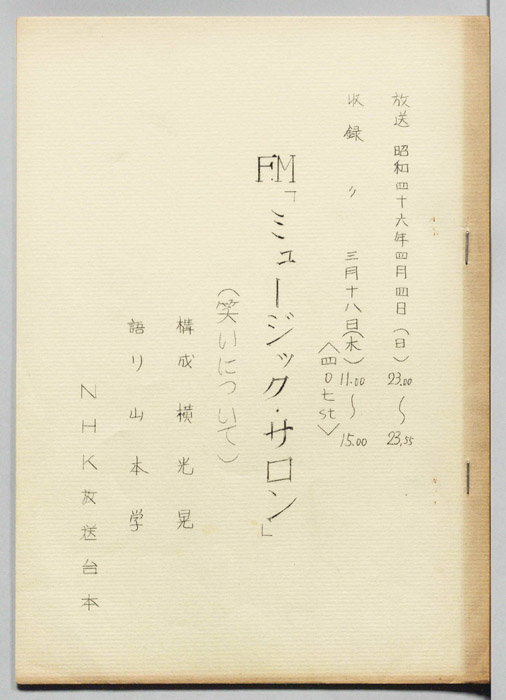 放送 昭和四十六年四月四日(日) 23.00〜23.55
収録 〃 三月十八日(木) 11.00〜15.00
〈407st〉
FM「ミュージック・サロン」
(笑いについて)
構成 横光晃
語り 山本学
NHK放送台本